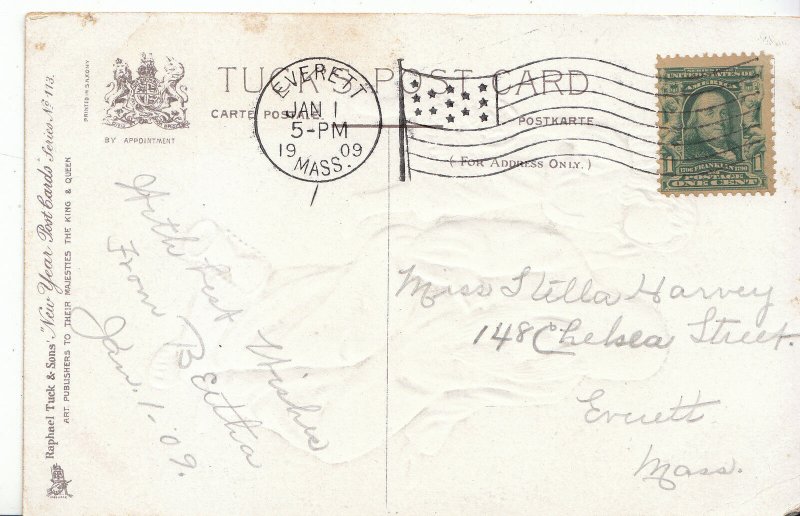 TUCK'S POST CARD
CARTE POSTALE.
POSTKARTE
( FOR ADDRESS ONLY. )
PRINTED IN SAXONY
BY APPOINTMENT
Raphael Tuck & Sons' "New Year Post Cards" Series No 113.
ART PUBLISHERS TO THEIR MAJESTIES THE KING & QUEEN
EVERETT
JAN 1
5-PM
19 09
MASS.
UNITED STATES OF
AMERICA
1706 FRANKLIN 1790
1 1
POSTAGE
ONE CENT
With Best Wishes
From Bertha
Jan. 1-09.
Miss Stella Harvey
148 Chelsea Street.
Everett
Mass.